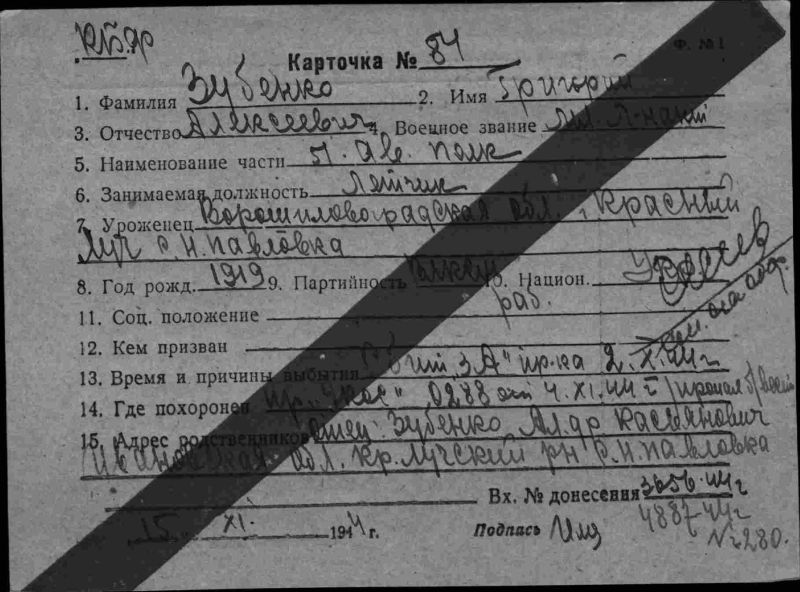 КБФ
Карточка № 84
Ф. № 1
1. Фамилия Зубенко 2. Имя Григорий
3. Отчество Алексеевич 4. Военное звание мл. л-нант
5. Наименование части 51. Ав. полк
6. Занимаемая должность Летчик
7. Уроженец Ворошиловоградская обл., Красный
Луч с. Н. Павловка
8. Год рожд. 1919 9. Партийность 10. Национ. Укр
раб.
11. Соц. положение
12. Кем призван
13. Время и причины выбытия "ЗА" пр-ка 2.XI.44 г
14. Где похоронен пр. 0288 от 4.XI.44 г
15. Адрес родственников отец: Зубенко Ал-др Касьянович
обл. Кр. Лучский рн с. Н. Павловка
Вх. № донесения 3656-44 г
15 XI. 1944 г. Подпись
4887-44 г
№ 280.